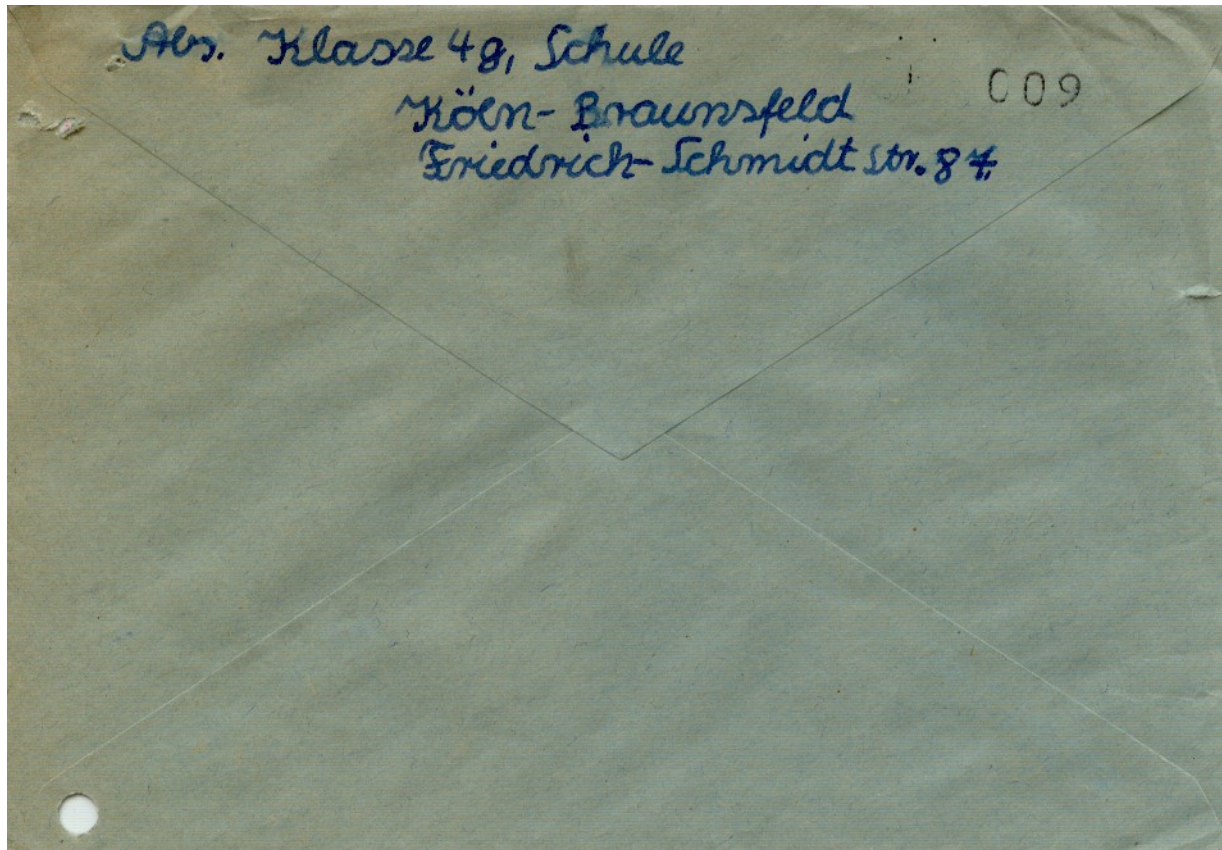 Abs. Klasse 4g, Schule
009
Köln-Braunsfeld
Friedrich-Schmidt Str. 87.